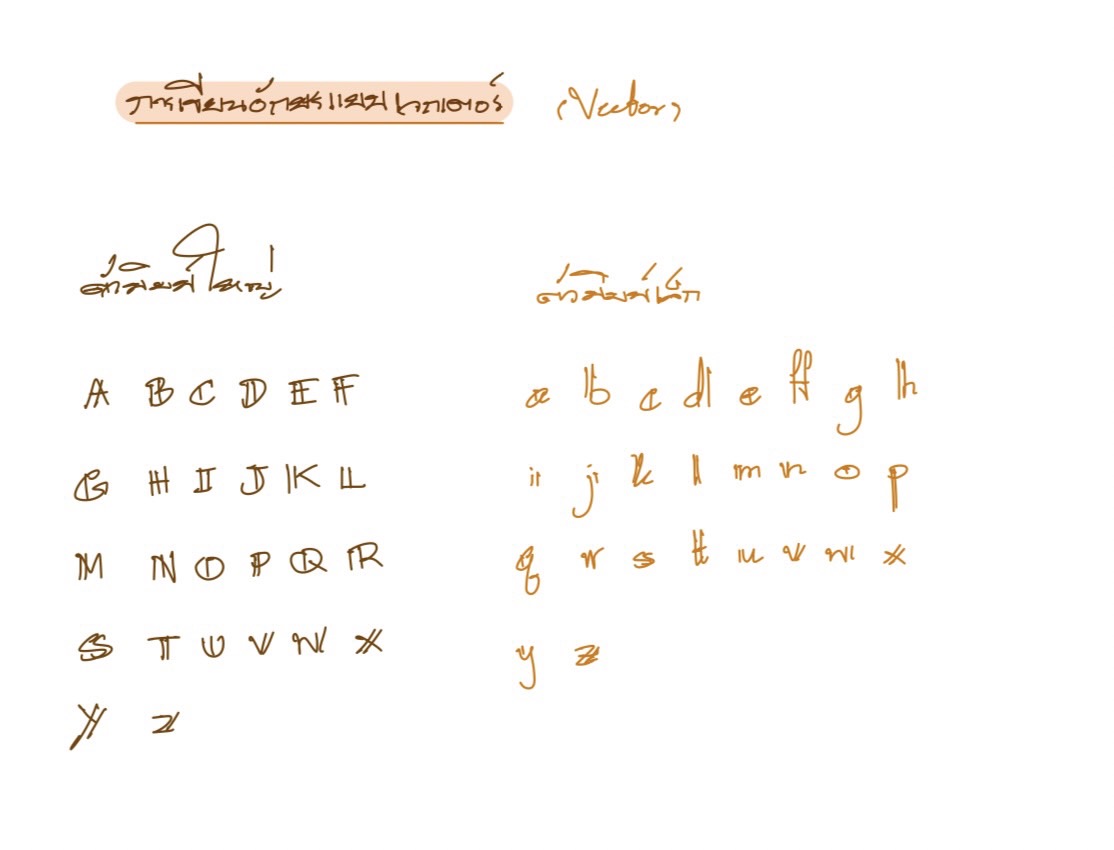 การเขียนอักษรแบบเวกเตอร์ (Vector)
ตัวพิมพ์ใหญ่
A B C D E F
G H I J K L
M N O P Q R
S T U V W X
Y Z
ตัวพิมพ์เล็ก
a b c d e f g h
i j k l m n o p
q r s t u v w x
y z